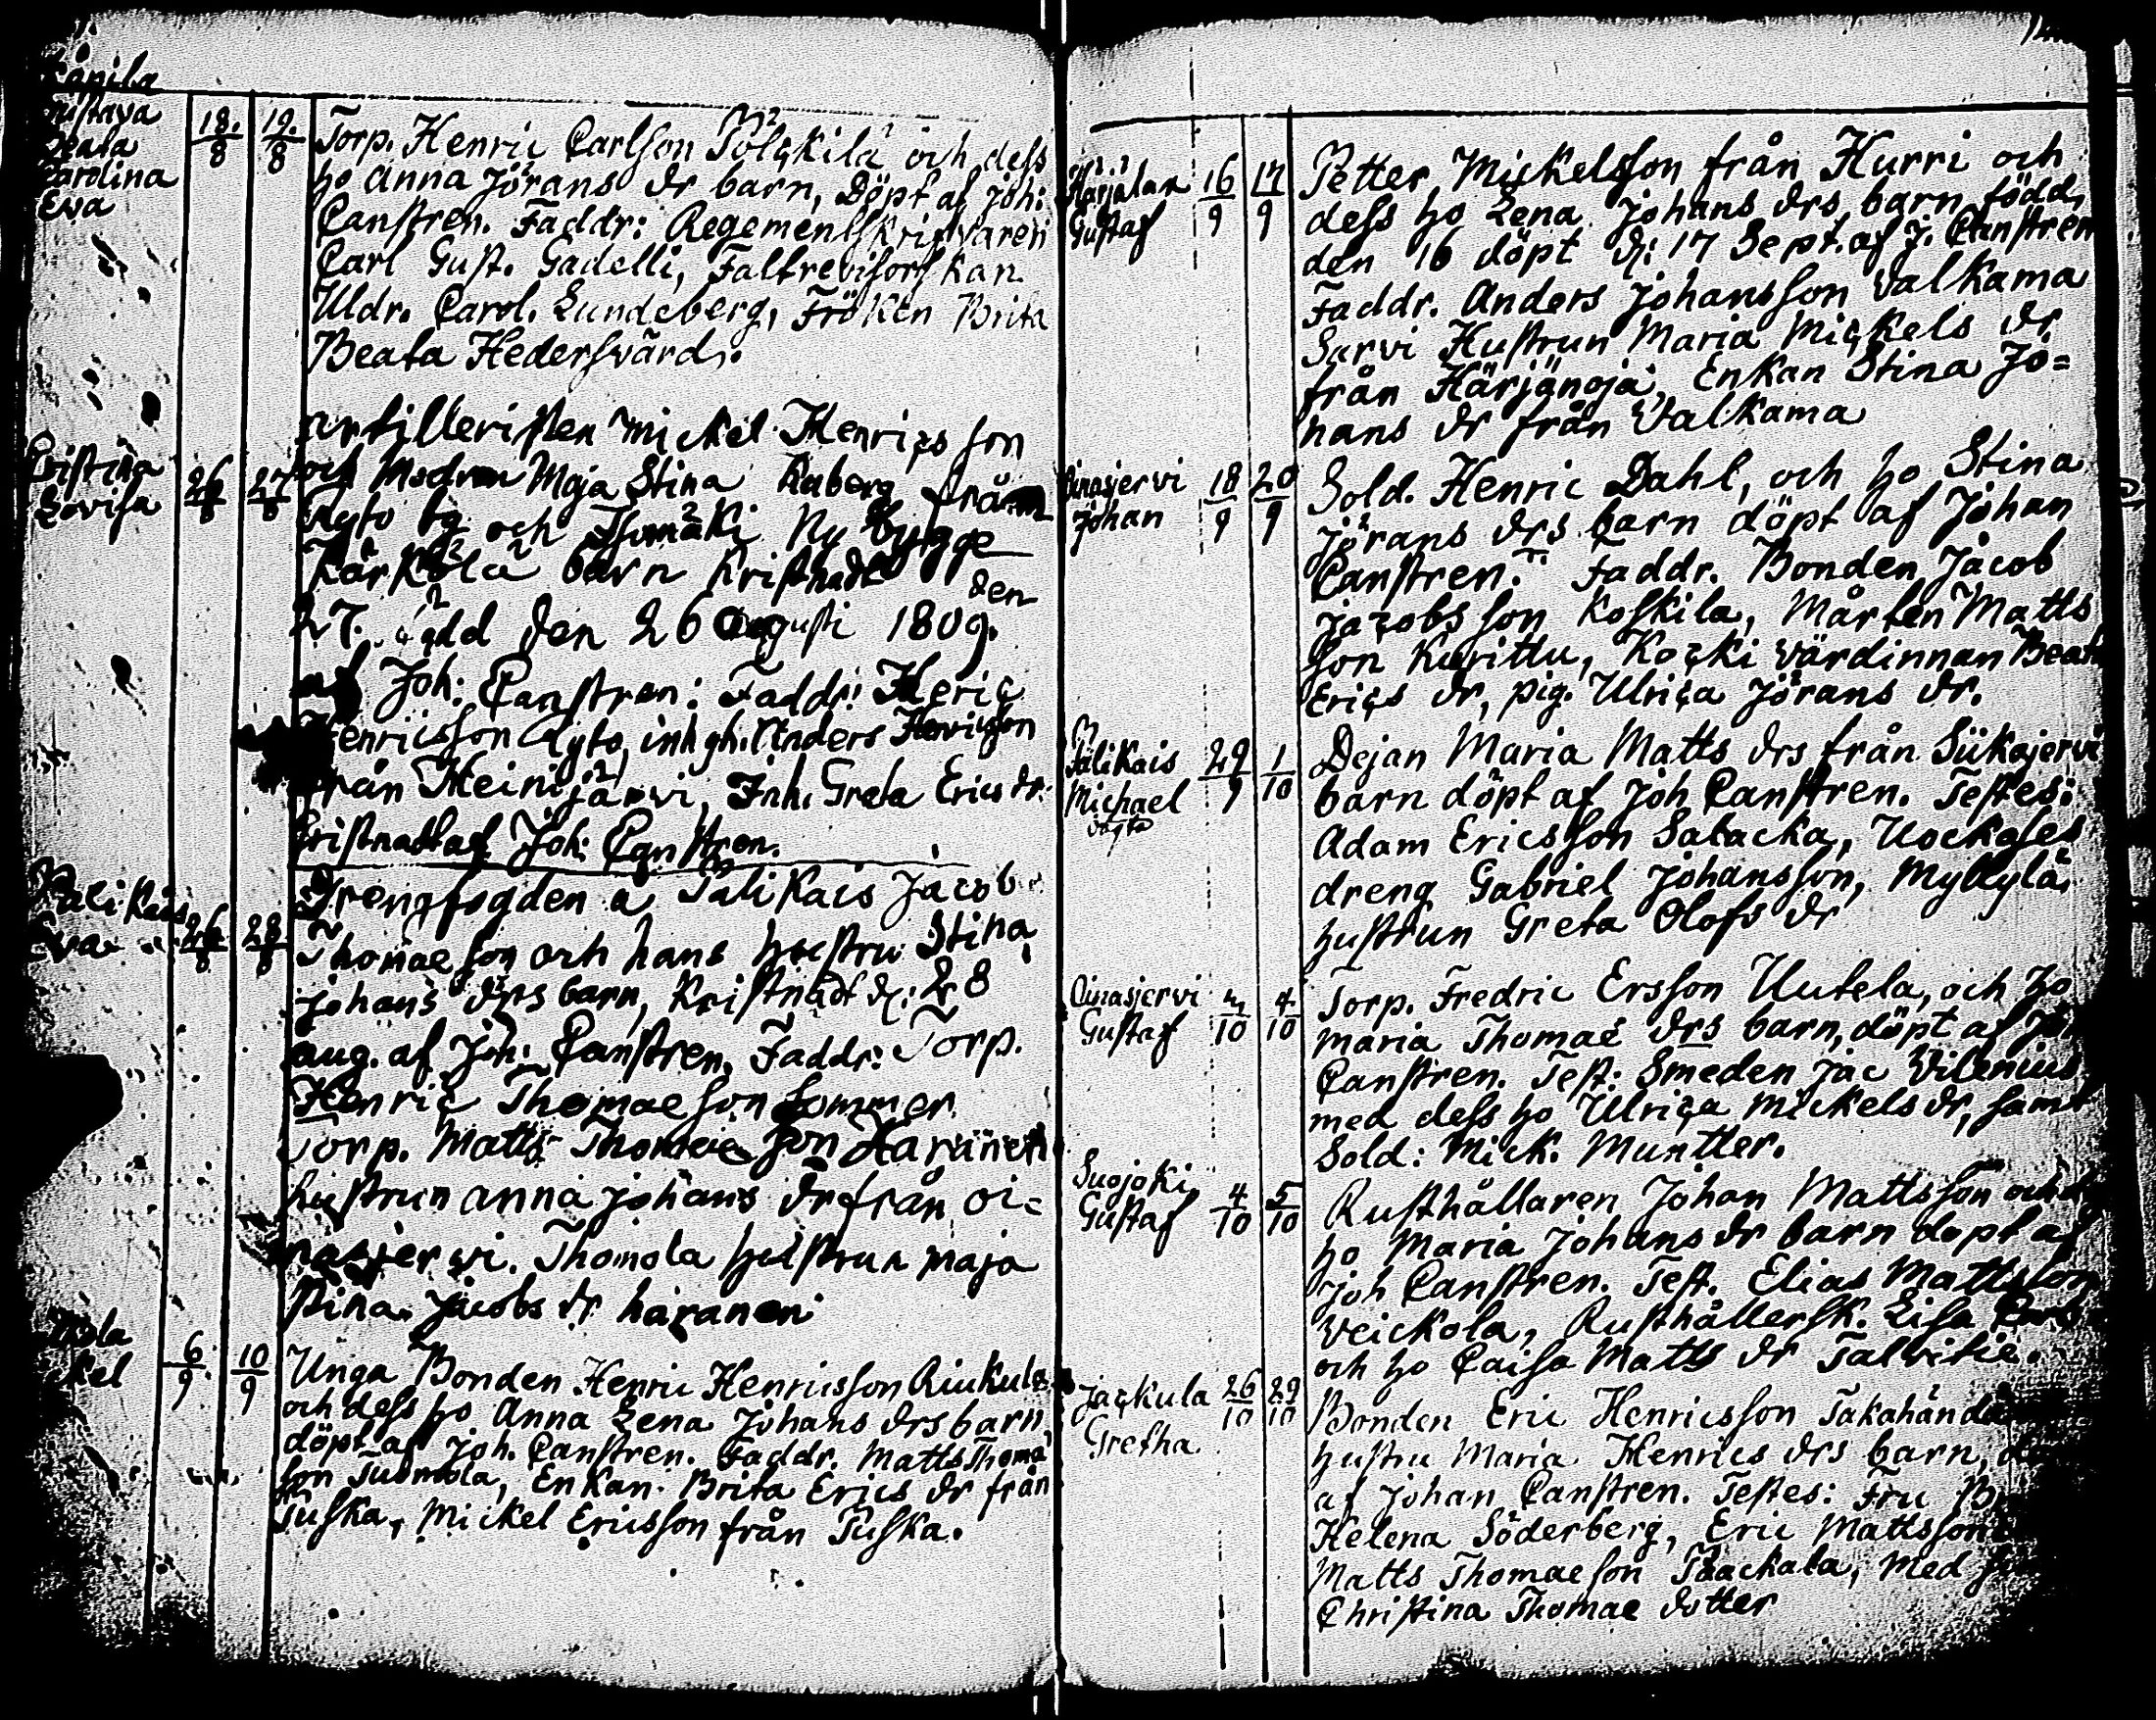 Gustava
Beata
Carolina
Eva
18. 19.
8 8
Torp. Henric Carlson Sölçkilä och dess
ho Anna Jörans dr barn, Döpt af Joh:
Canstren. Faddr: Regementsskrifvaren
Carl Gust. Gadelli, Faltrevisorskan
Uldr. Carol. Lundeberg, Fröken Brita
Beata Hedersvärd.
Cristina
Lovisa
26 27
8 8
Artilleristen Mickel Henriçs son
och Modren Maja Stina från
Kyto by och Ny bygge
Kärkölä barn Kristnadt den
27. född den 26 Augusti 1809.
af Joh: Canstren: Faddr: Heriç
Henricsson Kyto, inhgh. Anders Henricson
från Heinijärvi, Inh. Greta Erics dr.
Cristnadt af Joh: Canstren.
Palikais
Eva
26 28
8 8
Drengfogden a Palikais Jacob
Thomae son och hans hustru Stina
Johans drs barn, Kristnadt d: 28
aug. af Joh: Canstren, Faddr: Torp.
Henriç Thomae son Sommer
Torp. Matts Thomae son Haranen
hustrun Anna Johans dr från Oi=
nasjervi. Thomola hustrun Maja
Stina Jacobs dr haranen
6. 10
9. 9
Unga Bonden Henric Henricsson Riukula
och dess ho Anna Lena Johans drs barn
döpt af Joh. Canstren. Faddr. Matts Thoma
son Tuomola, Enkan Brita Erics dr från
Tuska, Mickel Ericsson från Tuska.
Harjulan
Gustaf
16 17
9 9
Petter Mickelsson från Hurri och
dess ho Lena Johans drs barn född
den 16 döpt d: 17 Sept. af J. Canstren
Faddr. Anders Johansson Valkama
Survi Hustrun Maria Miçkels dr
från Härjänoja, Enkan Stina Jo=
hans dr från Valkama
Oinasjervi
Johan
18 20
9 9
Sold. Henric Dahl, och ho Stina
Jörans drs barn döpt af Johan
Canstren. Faddr. Bonden Jacob
Jaçobsson Koskila, Mårten Matts
son Kurittu, Koçki värdinnan Beata
Eriçs dr, pig. Ulriça Jörans dr.
Palikais
Michael
29 1
9 10
Dejan Maria Matts drs från Sükajervi
barn döpt af Joh Canstren. Testes:
Adam Ericsson Satacka,
dreng Gabriel Johansson, Myllylä,
hustrun Greta Olofs dr
Oinasjervi
Gustaf
3 4
10 10
Torp. Fredric Ersson Uutela, och ho
Maria Thomae drs barn, döpt af Joh
Canstren. Test: Smeden Jac Vilenius
med dess ho Ulriça Mickels dr, samt
Sold: Mick. Muntter.
Suojoki
Gustaf
4 5
10 10
Rusthållaren Johan Mattsson och
ho Maria Johans dr barn döpt af
Joh Canstren. Test. Elias Mattsson
Veickola, Rusthållersk. Lisa
och ho Caisa Matts dr Talvitie.
Jaçkula
Gretha
26 29
10 10
Bonden Eric Henricsson Takahända
hustru Maria Henrics drs barn,
af Johan Canstren. Testes: Fru
Helena Söderberg, Eric Mattsson
Matts Thomaeson Taackala, med
Christina Thomae dotter